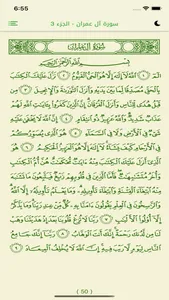 6:55
سورة آل عمران - الجزء 3
سُورَةُ آلِ عِمْرَانَ
بِسْمِ ٱللَّهِ ٱلرَّحْمَٰنِ ٱلرَّحِيمِ
الٓمٓ ١ ٱللَّهُ لَآ إِلَٰهَ إِلَّا هُوَ ٱلْحَيُّ ٱلْقَيُّومُ ٢ نَزَّلَ عَلَيْكَ ٱلْكِتَٰبَ
بِٱلْحَقِّ مُصَدِّقًا لِّمَا بَيْنَ يَدَيْهِ وَأَنزَلَ ٱلتَّوْرَىٰةَ وَٱلْإِنجِيلَ ٣ مِن قَبْلُ
هُدًى لِّلنَّاسِ وَأَنزَلَ ٱلْفُرْقَانَ إِنَّ ٱلَّذِينَ كَفَرُوا۟ بِـَٔايَٰتِ ٱللَّهِ لَهُمْ
عَذَابٌ شَدِيدٌ وَٱللَّهُ عَزِيزٌ ذُو ٱنتِقَامٍ ٤ إِنَّ ٱللَّهَ لَا يَخْفَىٰ عَلَيْهِ
شَىْءٌ فِى ٱلْأَرْضِ وَلَا فِى ٱلسَّمَآءِ ٥ هُوَ ٱلَّذِى يُصَوِّرُكُمْ فِى
ٱلْأَرْحَامِ كَيْفَ يَشَآءُ لَآ إِلَٰهَ إِلَّا هُوَ ٱلْعَزِيزُ ٱلْحَكِيمُ ٦ هُوَ ٱلَّذِىٓ
أَنزَلَ عَلَيْكَ ٱلْكِتَٰبَ مِنْهُ ءَايَٰتٌ مُّحْكَمَٰتٌ هُنَّ أُمُّ ٱلْكِتَٰبِ
وَأُخَرُ مُتَشَٰبِهَٰتٌ فَأَمَّا ٱلَّذِينَ فِى قُلُوبِهِمْ زَيْغٌ فَيَتَّبِعُونَ مَا تَشَٰبَهَ
مِنْهُ ٱبْتِغَآءَ ٱلْفِتْنَةِ وَٱبْتِغَآءَ تَأْوِيلِهِۦ وَمَا يَعْلَمُ تَأْوِيلَهُۥٓ إِلَّا ٱللَّهُ
وَٱلرَّٰسِخُونَ فِى ٱلْعِلْمِ يَقُولُونَ ءَامَنَّا بِهِۦ كُلٌّ مِّنْ عِندِ رَبِّنَا وَمَا يَذَّكَّرُ
إِلَّآ أُو۟لُوا۟ ٱلْأَلْبَٰبِ ٧ رَبَّنَا لَا تُزِغْ قُلُوبَنَا بَعْدَ إِذْ هَدَيْتَنَا وَهَبْ
لَنَا مِن لَّدُنكَ رَحْمَةً إِنَّكَ أَنتَ ٱلْوَهَّابُ ٨ رَبَّنَآ إِنَّكَ جَامِعُ
ٱلنَّاسِ لِيَوْمٍ لَّا رَيْبَ فِيهِ إِنَّ ٱللَّهَ لَا يُخْلِفُ ٱلْمِيعَادَ ٩
( 50 )